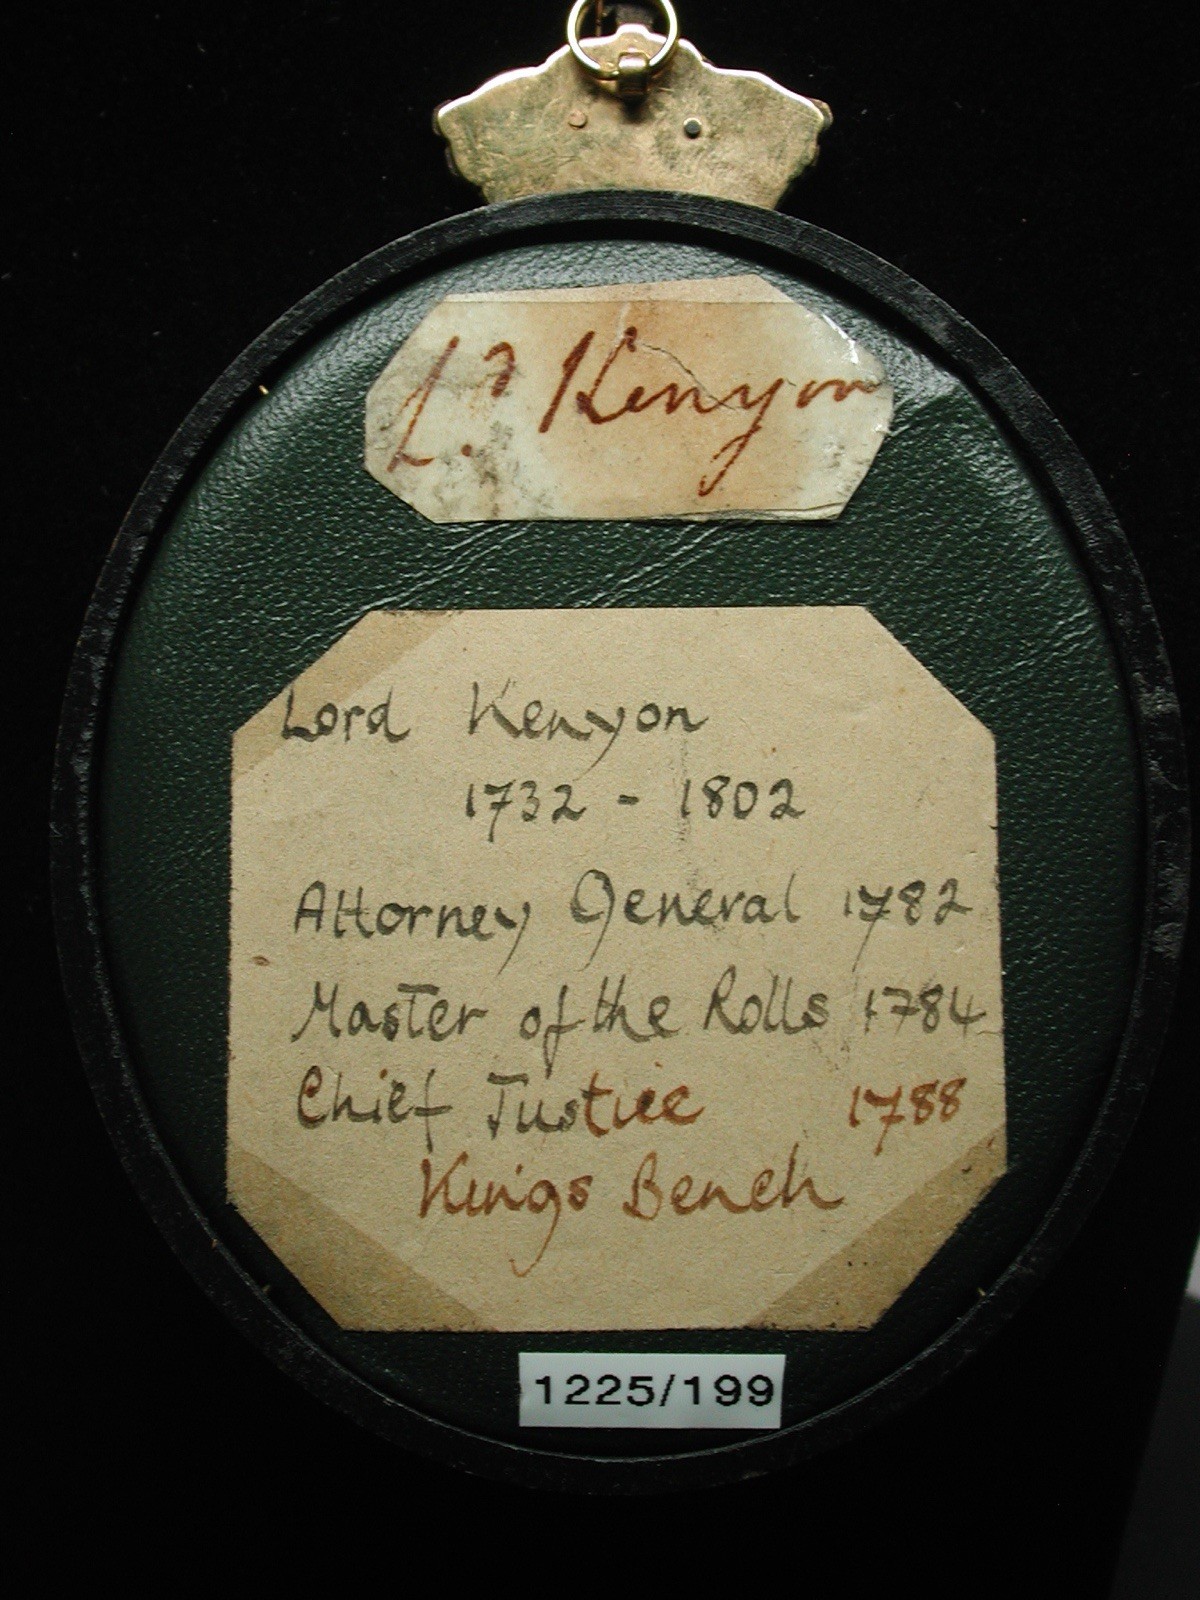 L.d Kenyon
Lord Kenyon
1732 - 1802
Attorney General 1782
Master of the Rolls 1784
Chief Justice 1788
Kings Bench
1225/199